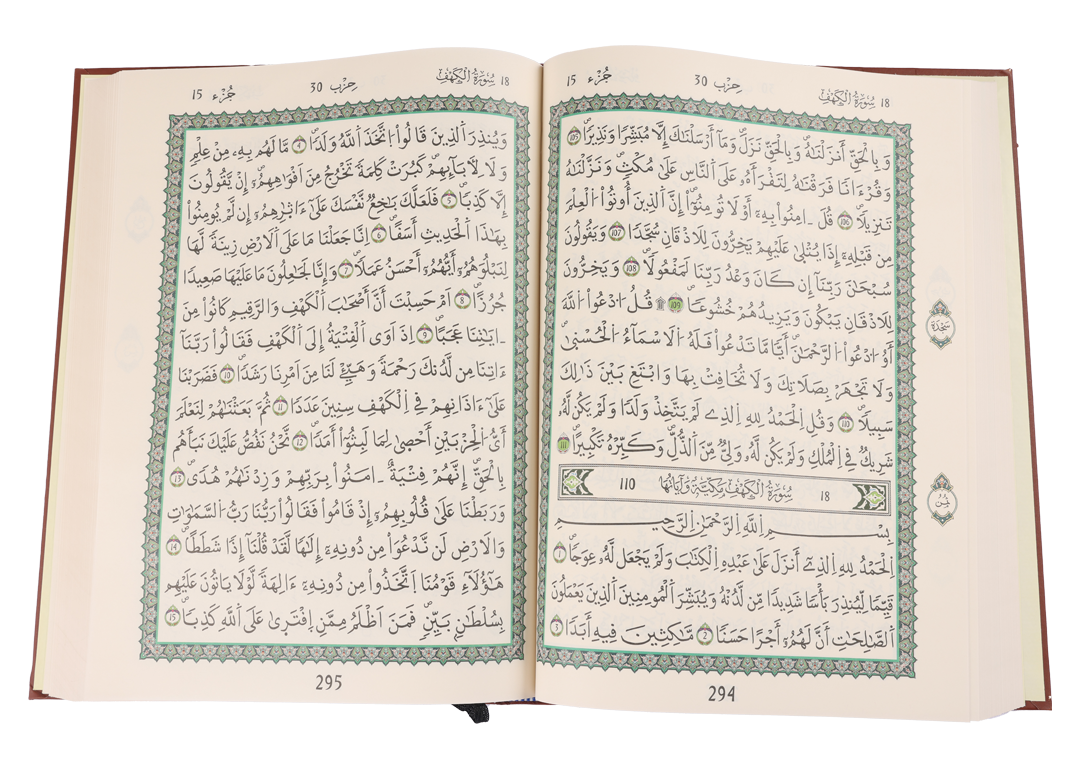 18 سُورَةُ الْكَهْفِ
حِزْب 30
جُزْء 15
وَبِالْحَقِّ أَنزَلْنَٰهُ وَبِالْحَقِّ نَزَلَ وَمَآ أَرْسَلْنَٰكَ إِلَّا مُبَشِّرًا وَنَذِيرًا 105
وَقُرْءَانًا فَرَقْنَٰهُ لِتَقْرَأَهُۥ عَلَى النَّاسِ عَلَىٰ مُكْثٍ وَنَزَّلْنَٰهُ
تَنزِيلًا 106 قُلَ ـامِنُوا۟ بِهِۦٓ أَوْ لَا تُومِنُوٓا۟ إِنَّ الَّذِينَ أُوتُوا۟ الْعِلْمَ
مِن قَبْلِهِۦٓ إِذَا يُتْلَىٰ عَلَيْهِمْ يَخِرُّونَ لِلَاذْقَانِ سُجَّدًا 107 وَيَقُولُونَ
سُبْحَٰنَ رَبِّنَآ إِن كَانَ وَعْدُ رَبِّنَا لَمَفْعُولًا 108 وَيَخِرُّونَ
لِلَاذْقَانِ يَبْكُونَ وَيَزِيدُهُمْ خُشُوعًا ۩ 109 قُلُ ادْعُوا۟ اللَّهَ
أَوُ ادْعُوا۟ الرَّحْمَٰنَ أَيًّا مَّا تَدْعُوا۟ فَلَهُ الَاسْمَآءُ الْحُسْنَىٰ
وَلَا تَجْهَرْ بِصَلَاتِكَ وَلَا تُخَافِتْ بِهَا وَابْتَغِ بَيْنَ ذَٰلِكَ
سَبِيلًا 110 وَقُلِ الْحَمْدُ لِلهِ الذِے لَمْ يَتَّخِذْ وَلَدًا وَلَمْ يَكُن لَّهُۥ
شَرِيكٌ فِے الْمُلْكِ وَلَمْ يَكُن لَّهُۥ وَلِيٌّ مِّنَ الذُّلِّ وَكَبِّرْهُ تَكْبِيرًا 111
18 سُورَةُ الْكَهْفِ مَكِّيَّةٌ وَءَايَاتُهَا 110
بِسْمِ اللَّهِ الرَّحْمَٰنِ الرَّحِيمِ
الْحَمْدُ لِلهِ الذِےٓ أَنزَلَ عَلَىٰ عَبْدِهِ الْكِتَٰبَ وَلَمْ يَجْعَل لَّهُۥ عِوَجًا 1
قَيِّمًا لِّيُنذِرَ بَأْسًا شَدِيدًا مِّن لَّدُنْهُ وَيُبَشِّرَ الْمُومِنِينَ الذِينَ يَعْمَلُونَ
الصَّٰلِحَٰتِ أَنَّ لَهُمُۥٓ أَجْرًا حَسَنًا 2 مَّٰكِثِينَ فِيهِ أَبَدًا 3
سَجْدَة
ثُمُن
294
18 سُورَةُ الْكَهْفِ
حِزْب 30
جُزْء 15
وَيُنذِرَ الذِينَ قَالُوا۟ اتَّخَذَ اللَّهُ وَلَدًا 4 مَّا لَهُم بِهِۦ مِنْ عِلْمٍ
وَلَا لِأَبَآئِهِمْ كَبُرَتْ كَلِمَةً تَخْرُجُ مِنَ افْوَٰهِهِمُۥٓ إِنْ يَّقُولُونَ
إِلَّا كَذِبًا 5 فَلَعَلَّكَ بَٰخِعٌ نَّفْسَكَ عَلَىٰٓ ءَاثَٰرِهِمُۥٓ إِن لَّمْ يُومِنُوا۟
بِهَٰذَا الْحَدِيثِ أَسَفًا 6 إِنَّا جَعَلْنَا مَا عَلَى الَارْضِ زِينَةً لَّهَا
لِنَبْلُوَهُمُۥٓ أَيُّهُمُۥٓ أَحْسَنُ عَمَلًا 7 وَإِنَّا لَجَٰعِلُونَ مَا عَلَيْهَا صَعِيدًا
جُرُزًا 8 اَمْ حَسِبْتَ أَنَّ أَصْحَٰبَ الْكَهْفِ وَالرَّقِيمِ كَانُوا۟ مِنَ
ـايَٰتِنَا عَجَبًا 9 إِذَ اوَى الْفِتْيَةُ إِلَى الْكَهْفِ فَقَالُوا۟ رَبَّنَآ
ءَاتِنَا مِن لَّدُنكَ رَحْمَةً وَهَيِّئْ لَنَا مِنَ امْرِنَا رَشَدًا 10 فَضَرَبْنَا
عَلَىٰٓ ءَاذَانِهِمْ فِے الْكَهْفِ سِنِينَ عَدَدًا 11 ثُمَّ بَعَثْنَٰهُمْ لِنَعْلَمَ
أَيُّ الْحِزْبَيْنِ أَحْصَىٰ لِمَا لَبِثُوٓا۟ أَمَدًا 12 نَّحْنُ نَقُصُّ عَلَيْكَ نَبَأَهُم
بِالْحَقِّ إِنَّهُمْ فِتْيَةٌ ـامَنُوا۟ بِرَبِّهِمْ وَزِدْنَٰهُمْ هُدًى 13
وَرَبَطْنَا عَلَىٰ قُلُوبِهِمُۥٓ إِذْ قَامُوا۟ فَقَالُوا۟ رَبُّنَا رَبُّ السَّمَٰوَٰتِ
وَالَارْضِ لَن نَّدْعُوَا۟ مِن دُونِهِۦٓ إِلَٰهًا لَّقَدْ قُلْنَآ إِذًا شَطَطًا 14
هَٰٓؤُلَآءِ قَوْمُنَا اتَّخَذُوا۟ مِن دُونِهِۦٓ ءَالِهَةً لَّوْلَا يَاتُونَ عَلَيْهِم
بِسُلْطَٰنٍ بَيِّنٍ فَمَنَ اظْلَمُ مِمَّنِ افْتَرَىٰ عَلَى اللَّهِ كَذِبًا 15
295